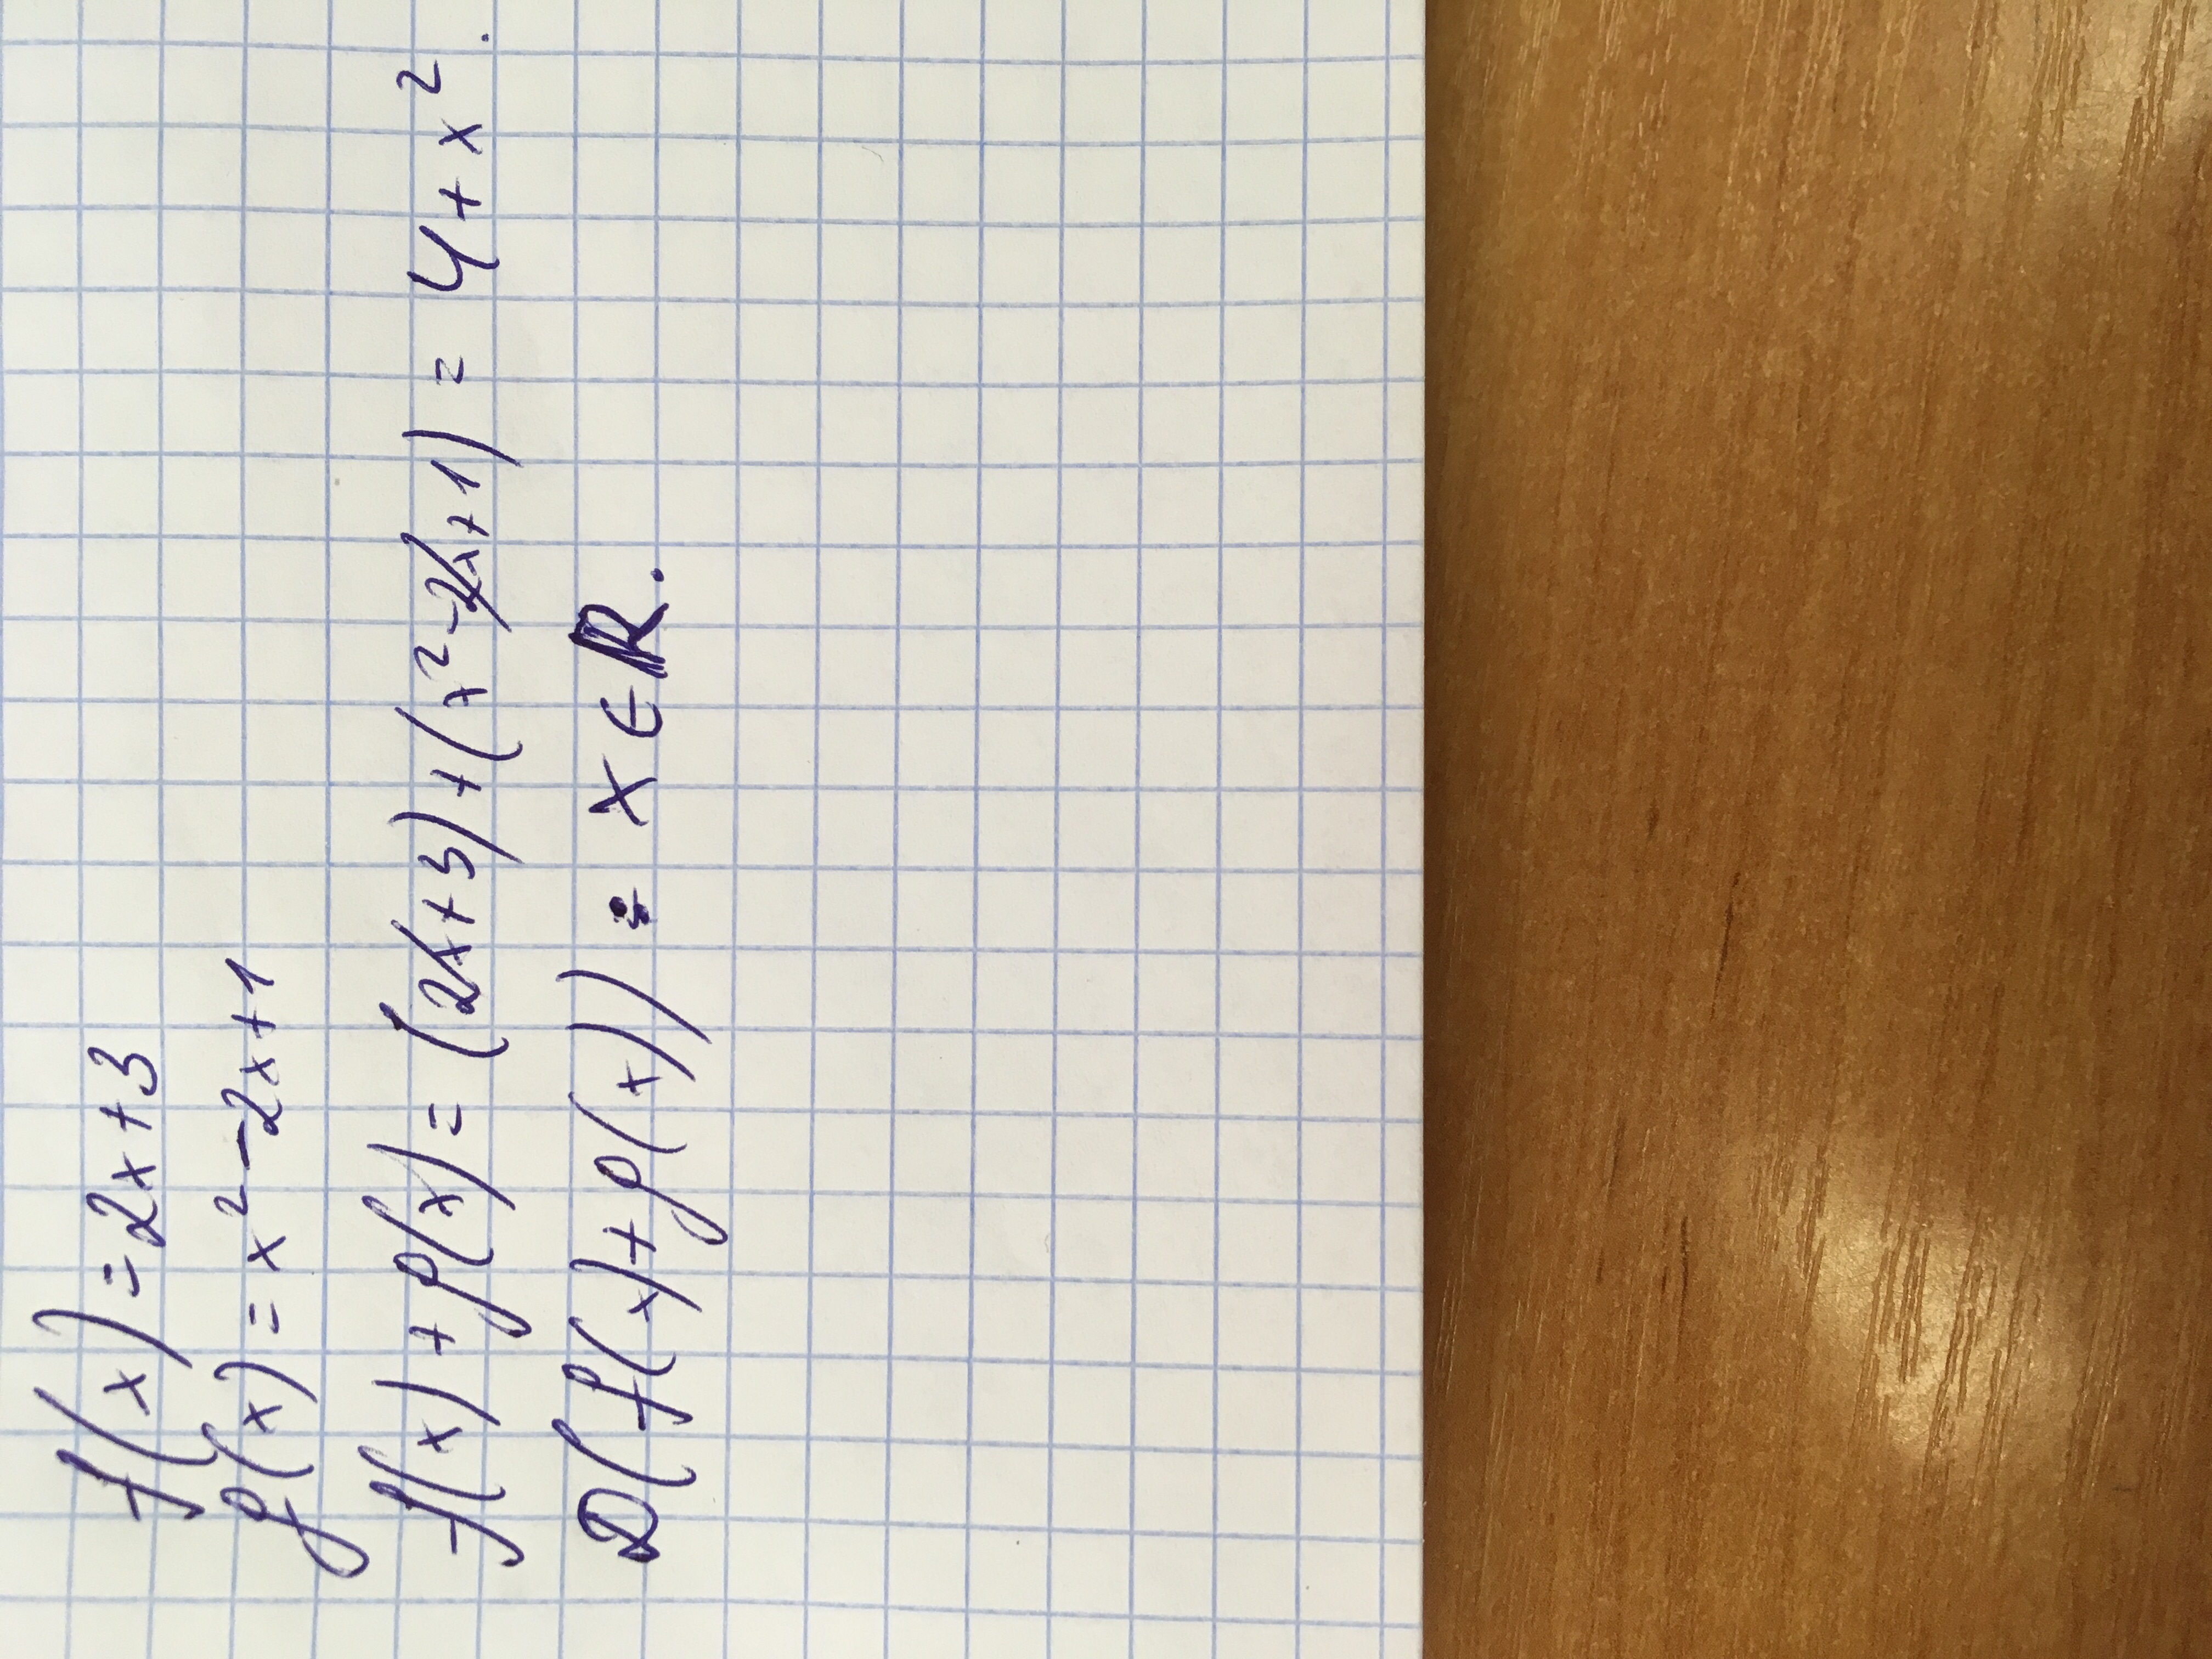 f(x) = 2x+3
g(x) = x²-2x+1
f(x) + g(x) = (2x+3)+(x²-2x+1) = 4+x².
D(f(x)+g(x)) : x∈ℝ.